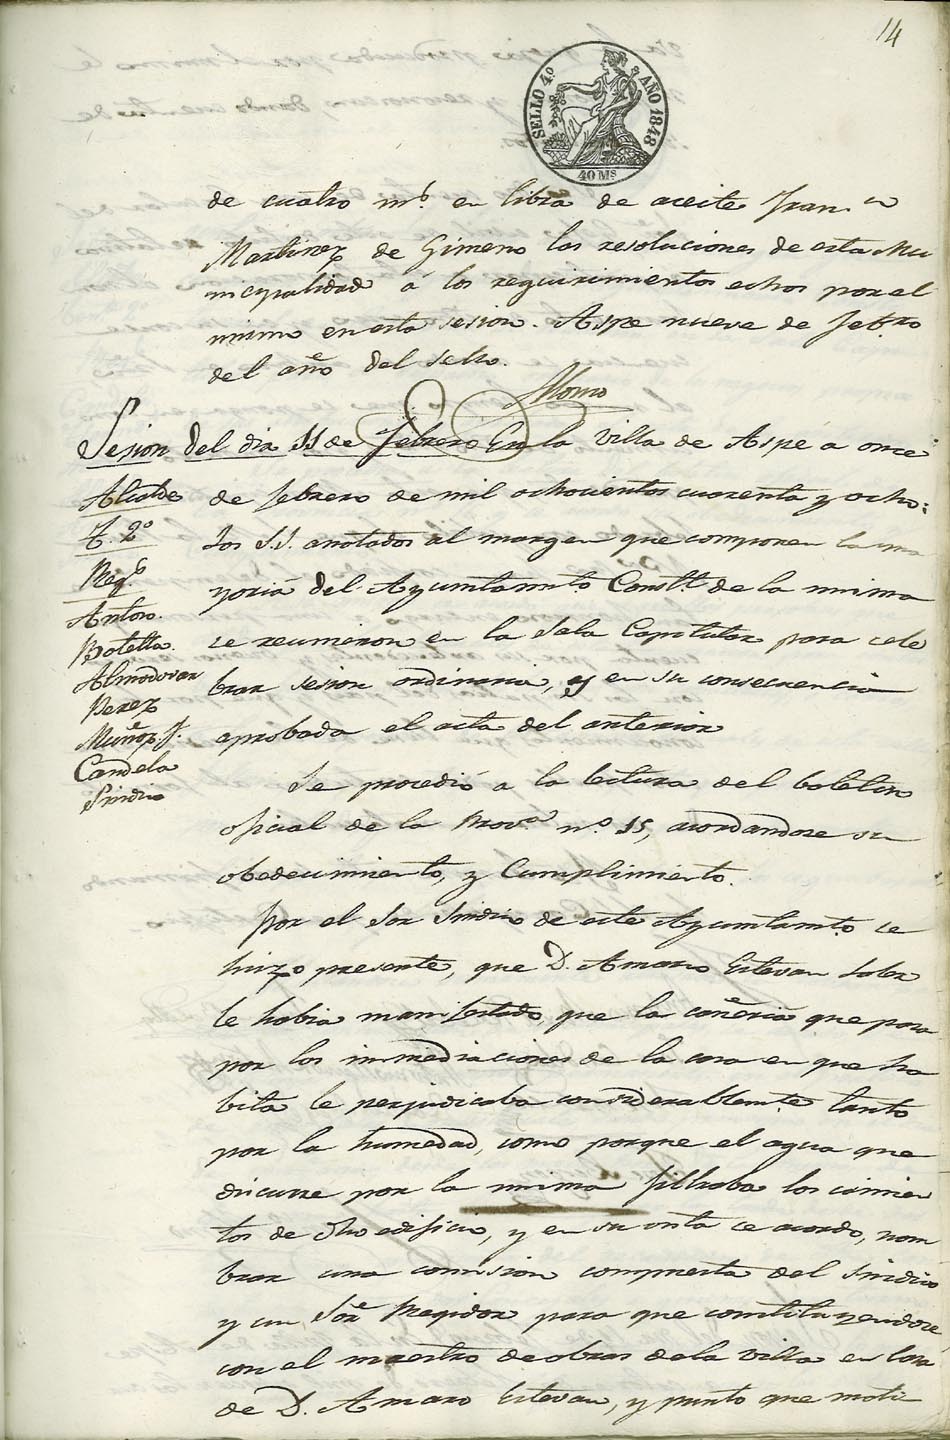 14
SELLO 4.º AÑO 1848
40 Ms
de cuatro ms. en libra de aceite Fran.co
Martinez de Gimeno las resoluciones de esta Mu
nicipalidad á los requirimientos echos por el
mismo en esta sesion. Aspe nueve de Febro
del año del sello.
Sesion del dia 11 de Febrero En la villa de Aspe a once
de febrero de mil ochocientos cuarenta y ocho:
los S.S. anotados al margen que componen la ma
yoria del Ayuntamto. Constl. de la misma
se reunieron en la Sala Capitular para cele
brar sesion ordinaria, y en su consecuencia
aprobada el acta del anterior
Alcalde
T. 2º
Regs
Anton.
Botella.
Almodovar
Perez
Muñoz J.
Candela
Sindico
Se procedió a la lectura del boletin
oficial de la Prova. nº. 15, acordandose su
obedecimiento, y Cumplimiento.
Por el Sor Sindico de este Ayuntamto. se
hizo presente, que D. Amaro Estevan
le habia manifestado, que la cañeria que pasa
por las inmediaciones de la casa en que ha
bita le perjudicaba considerablemte. tanto
por la humedad, como porque el agua que
discurre por la misma filtraba los cimien
tos de dho edificio, y en su vista se acordo, nom
brar una comision compuesta del Sindico
y un Sor Regidor para que constituyendose
con el maestro de obras de la villa en casa
de D. Amaro Estevan, y punto que moti